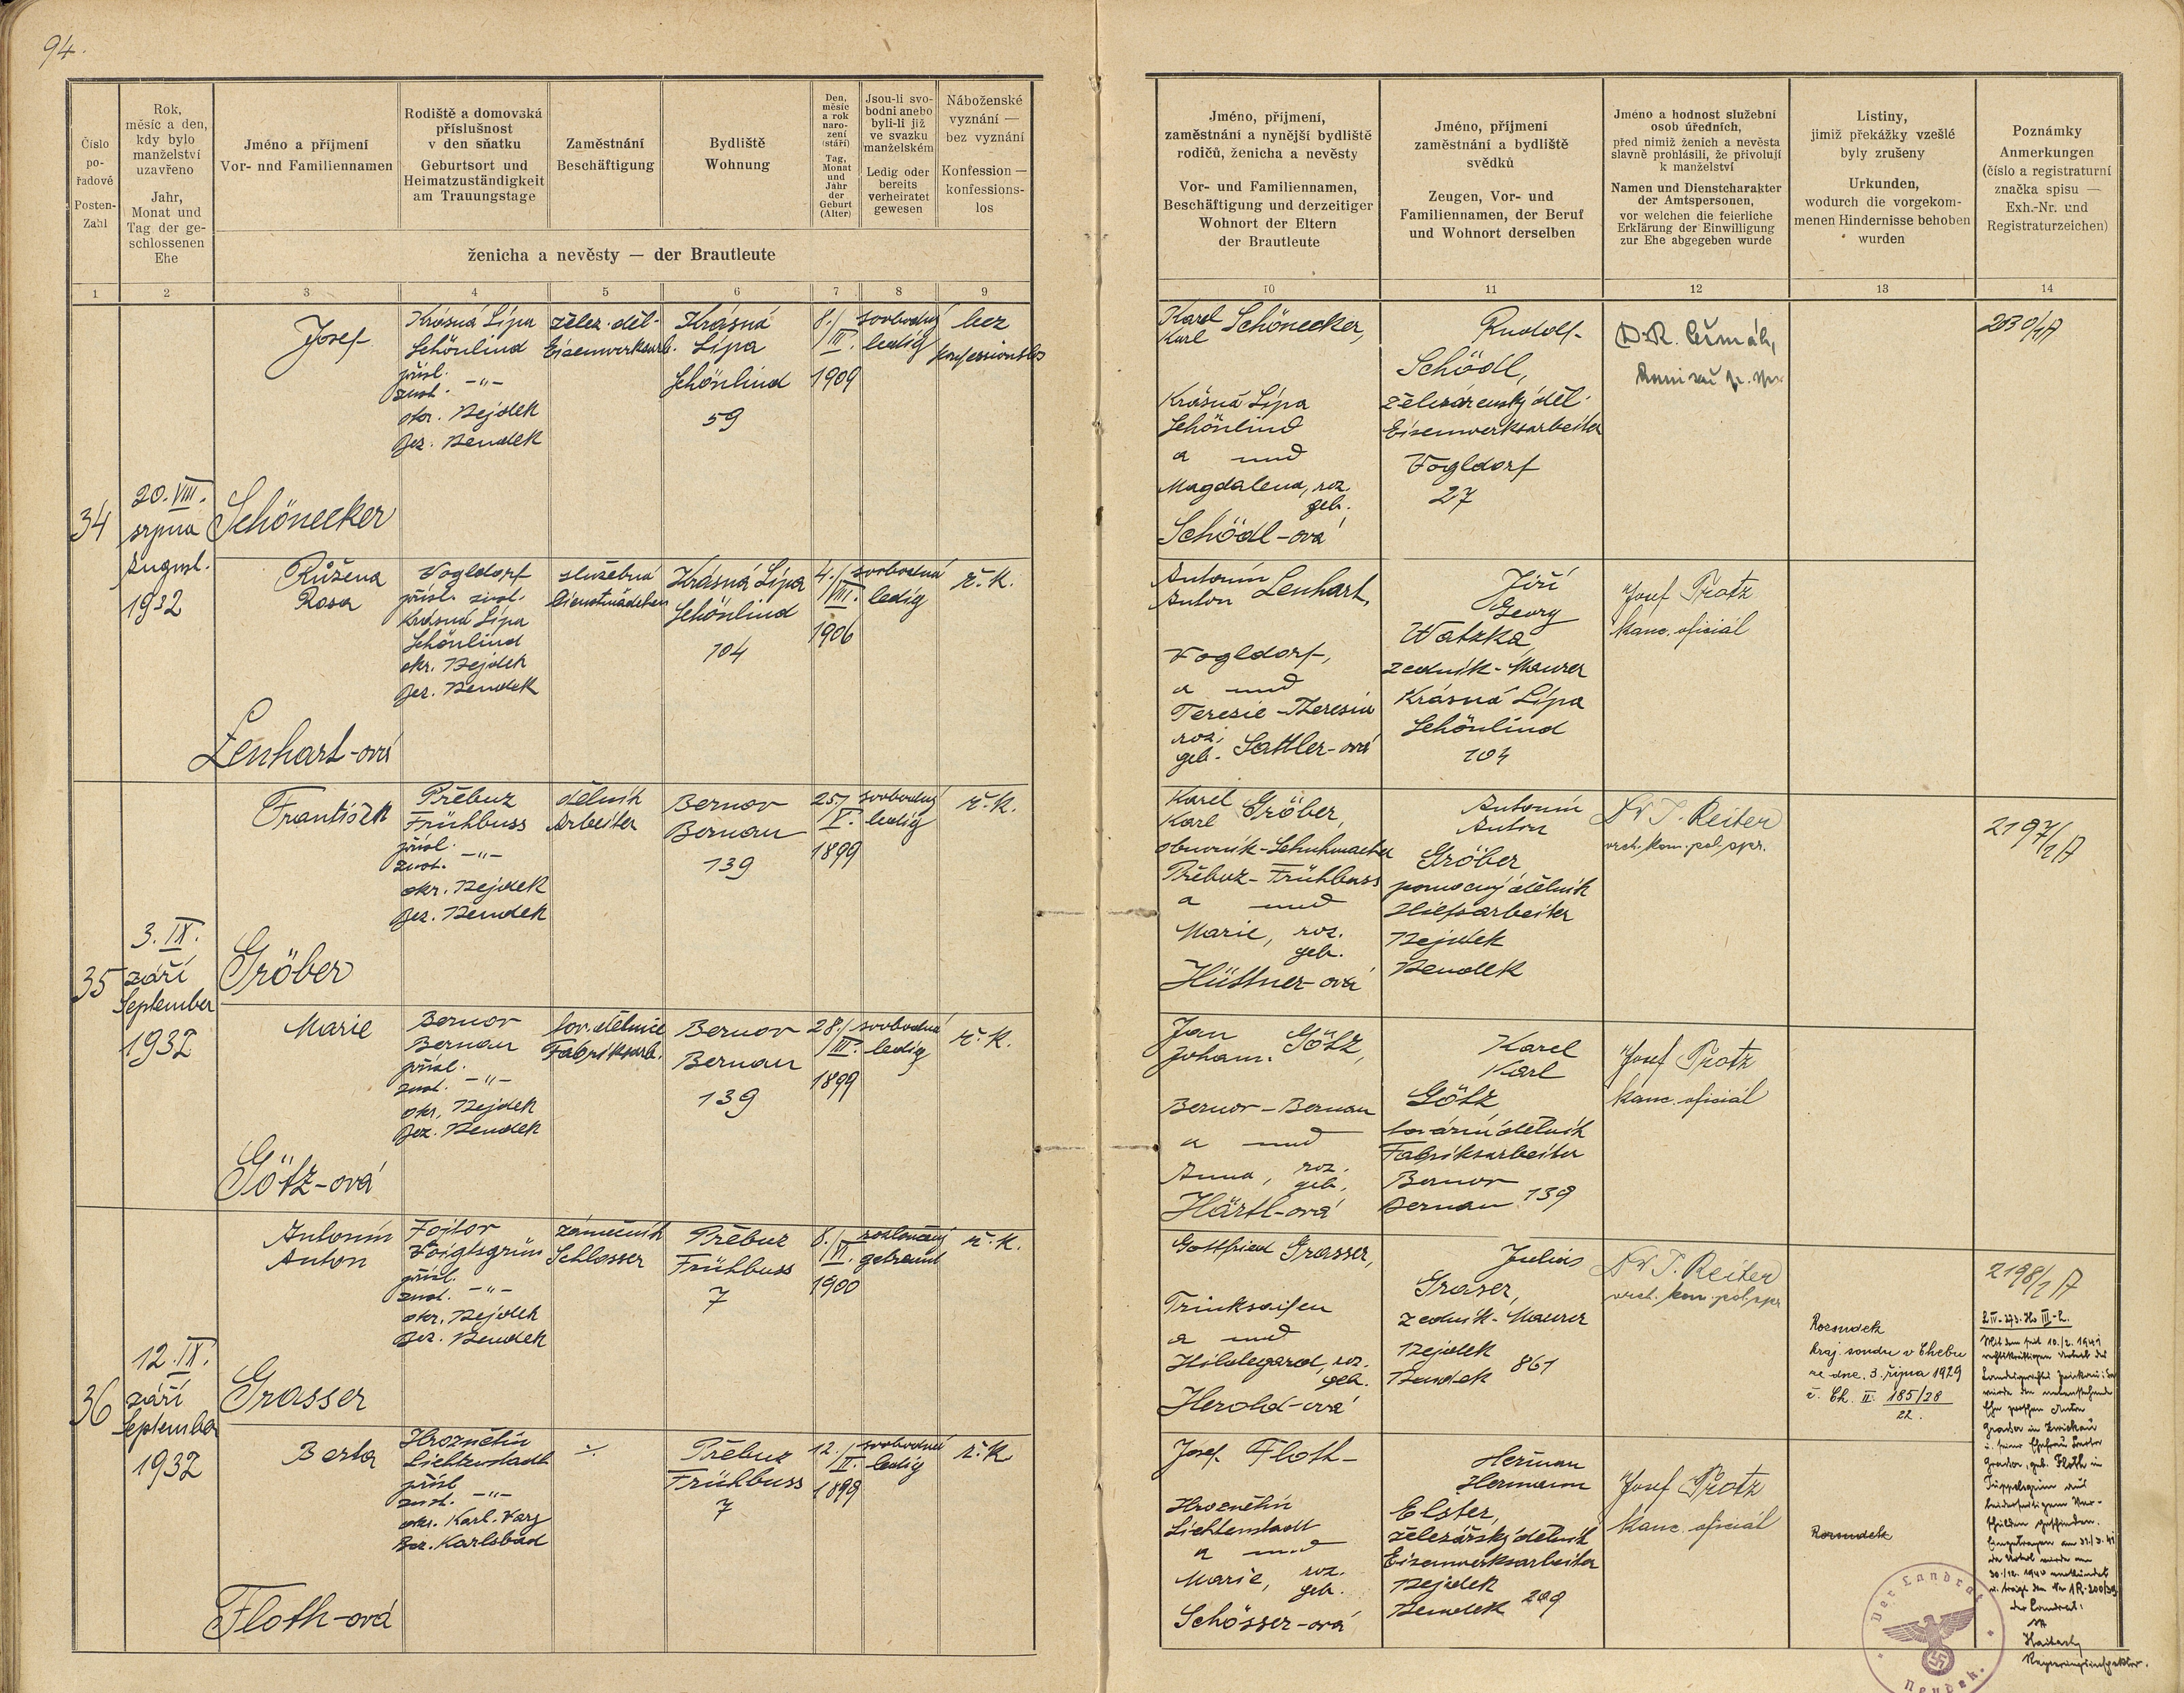 94.
Číslo
po-
řadové
Posten-
Zahl
Rok,
měsíc a den,
kdy bylo
manželství
uzavřeno
Jahr,
Monat und
Tag der ge-
schlossenen
Ehe
Jméno a příjmení
Vor- und Familiennamen
Rodiště a domovská
příslušnost
v den sňatku
Geburtsort und
Heimatzuständigkeit
am Trauungstage
Zaměstnání
Beschäftigung
Bydliště
Wohnung
Den,
měsíc
a rok
naro-
zení
(stáří)
Tag,
Monat
und
Jahr
der
Geburt
(Alter)
Jsou-li svo-
bodni anebo
byli-li již
ve svazku
manželském
Ledig oder
bereits
verheiratet
gewesen
Náboženské
vyznání —
bez vyznání
Konfession —
konfessions-
los
ženicha a nevěsty — der Brautleute
1 2 3 4 5 6 7 8 9
Jméno, příjmení,
zaměstnání a nynější bydliště
rodičů, ženicha a nevěsty
Vor- und Familiennamen,
Beschäftigung und derzeitiger
Wohnort der Eltern
der Brautleute
Jméno, příjmení
zaměstnání a bydliště
svědků
Zeugen, Vor- und
Familiennamen, der Beruf
und Wohnort derselben
Jméno a hodnost služební
osob úředních,
před nimiž ženich a nevěsta
slavně prohlásili, že přivolují
k manželství
Namen und Dienstcharakter
der Amtspersonen,
vor welchen die feierliche
Erklärung der Einwilligung
zur Ehe abgegeben wurde
Listiny,
jimiž překážky vzešlé
byly zrušeny
Urkunden,
wodurch die vorgekom-
menen Hindernisse behoben
wurden
Poznámky
Anmerkungen
(číslo a registraturní
značka spisu —
Exh.-Nr. und
Registraturzeichen)
10 11 12 13 14
34
20. VIII.
srpna
August.
1932
Josef
Schönecker
Krásná Lípa
Schönlind
přísl.
zust. -"-
okr. Nejdek
Bez. Neudek
želez. děl.
Eisenwerksarb.
Krásná
Lípa
Schönlind
59
8./
III.
1909
svobodný
ledig
bez
konfessionslos
Karel
Karl Schönecker,
Krásná Lípa
Schönlind
a und
Magdalena, roz.
geb.
Schödl-ová
Rudolf
Schödl,
železárenský děl.
Eisenwerksarbeiter
Vogldorf
27
2030/1A
Růžena
Rosa
Lenhart-ová
Vogldorf
přísl. zust.
Krásná Lípa
Schönlind
okr. Nejdek
Bez. Neudek
služebná
Dienstmädchen
Krásná Lípa
Schönlind
104
4./
VIII.
1906
svobodná
ledig
ř. k.
Antonín
Anton Lenhart,
Vogldorf,
a und
Teresie - Theresia
roz.
geb. Sattler-ová
Jiří
Georg
Watzka,
zedník - Maurer
Krásná Lípa
Schönlind
104
Josef Protz
kanc. oficiál
35
3. IX.
září
September
1932
František
Gröber
Přebuz
Frühbuss
přísl.
zust. -"-
okr. Nejdek
Bez. Neudek
dělník
Arbeiter
Bernov
Bernau
139
25./
V.
1899
svobodný
ledig
ř. k.
Karel
Karl Gröber,
obuvník - Schuhmacher
Přebuz - Frühbuss
a und
Marie, roz.
geb.
Hüttner-ová
Antonín
Anton
Gröber
pomocný dělník
Hilfsarbeiter
Nejdek
Neudek
Dr J. Reiter
vrch. kom. pol. spr.
2197/1A
Marie
Götz-ová
Bernov
Bernau
přísl.
zust. -"-
okr. Nejdek
Bez. Neudek
tov. dělnice
Fabriksarb.
Bernov
Bernau
139
28./
III.
1899
svobodná
ledig
ř. k.
Jan
Johann. Götz,
Bernov - Bernau
a und
Anna, roz.
geb.
Härtl-ová
Karel
Karl
Götz
tovární dělník
Fabriksarbeiter
Bernov
Bernau 139
Josef Protz
kanc. oficiál
36
12. IX.
září
September
1932
Antonín
Anton
Grasser
Fojtov
Voigtsgrün
přísl.
zust. -"-
okr. Nejdek
Bez. Neudek
zámečník
Schlosser
Přebuz
Frühbuss
7
8./
VI.
1900
rozloučený
getrennt
ř. k.
Gottfried Grasser,
Trinksaifen
a und
Hildegard, roz.
geb.
Herold-ová
Julius
Graser,
zedník - Maurer
Nejdek
Neudek 861
Dr J. Reiter
vrch. kom. pol. spr.
Rozsudek
kraj. soudu v Chebu
ze dne 3. října 1929
č. Ck. II. 185/28
22.
2198/1A
Berta
Floth-ová
Hroznětín
Lichtenstadt
přísl.
zust. -"-
okr. Karl. Vary
Bez. Karlsbad
÷
Přebuz
Frühbuss
7
12./
II.
1899
svobodná
ledig
ř. k.
Josef Floth
Hroznětín
Lichtenstadt
a und
Marie, roz.
geb.
Schösser-ová
Heřman
Hermann
Elster,
železářský dělník
Eisenwerksarbeiter
Nejdek
Neudek 209
Josef Protz
kanc. oficiál
Rozsudek
Der Landrat
Neudek.